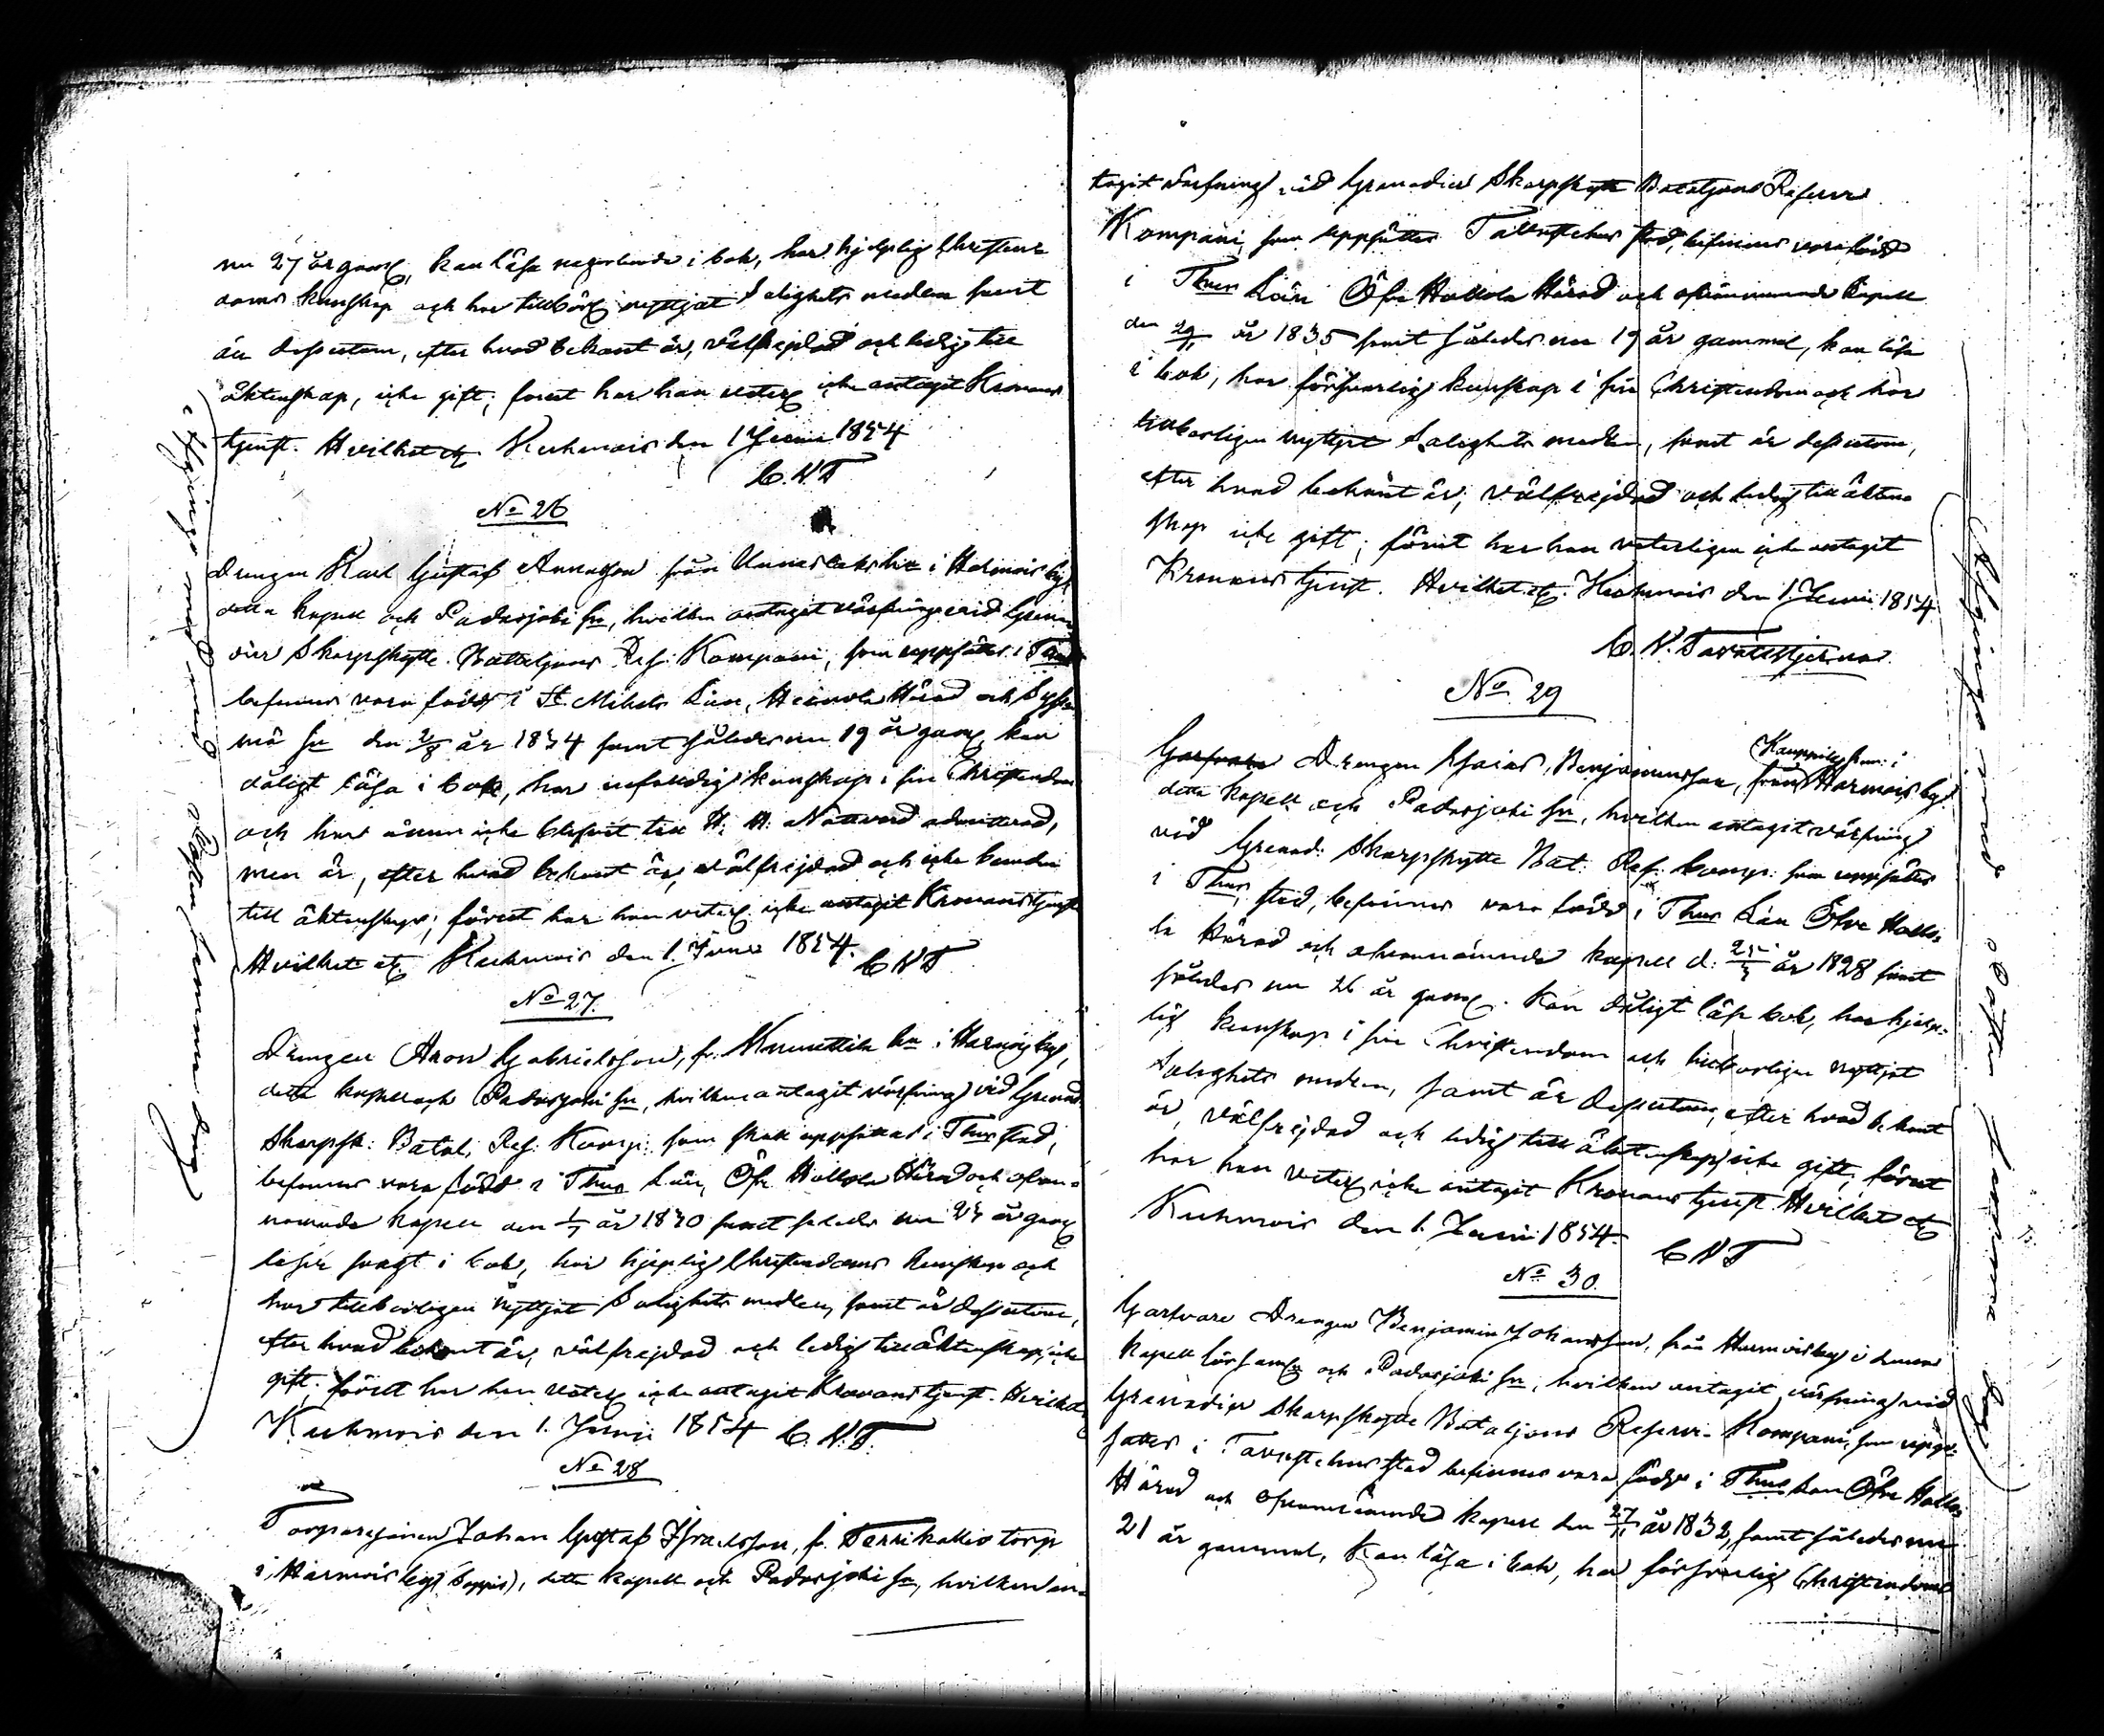 nu 27 år gaml, kan läsa någorlunda i bok, har hjelplig Christen-
doms kunskap och har tillbörl nyttjat Salighets medlen samt
än dessutom, efter hvad bekant är, välfrejdad och ledig till
äktenskap, icke gift; förut har han veterl icke antagit Kronans
tjenst. Hvilket etc Kuhmois den 1 Junii 1854
C.N.T
No 26
Drengen Karl Gustaf Annasson från i Harmois by,
detta kapell och Padasjoki Sn, hvilken antagit värfning vid Grena-
dier Skarpskytte Battaljons Res: Kompani, som uppsättes i
befinnes vara född i St. Michels Län, Heinola Härad och Sysme
må Sn den år 1834 samt således nu 19 år gaml, kan
dåligt läsa i bok, har kunskap i sin Christendom
och har ännu icke blifvit till H. H. Nattvard admitterad,
men är, efter hvad bekant är, välfrejdad och icke bunden
till äktenskap; förut har han veterl icke antagit Kronans tjenst
Hvilket etc. Kuhmois den 1. Junii 1854. C N T
No 27.
Drengen Aron Gabrielsson, fr. Knuuttila hn i Harmois by,
detta kapell och Padasjoki Sn, hvilken antagit värfning vid Grenad.
Skarpsk: Batal. Res. Komp: som skall uppsättas i Thus stad,
befinnes vara född i Thus Län, Öfre Hollola Härad och ofvan-
nämnde kapell den 1/7 år 1830 samt således nu år gaml
läser svagt i bok, har hjelplig Christendoms kunskap och
har tillbörligen nyttjat Salighets medlen, samt är dessutom,
efter hvad bekant är, välfrejdad och ledig till äktenskap, icke
gift: förut har han veterl icke antagit Kronans tjenst. Hvilket
Kuhmois den 1. Junii 1854 C. N. T.
No 28
Torparesonen Johan Gustaf Israelsson, fr. Terrikallio torp
i Harmois by, detta kapell och Padasjoki Sn, hvilken an-
Afgingo med eod. ofta samma dag
tagit värfning vid Grenadier Skarpskytte Bataljons Reserve
Kompani, som uppsättes Tavastehus stad, befinnes vara född
i Thus Län Öfre Hollola Härad och ofvannämnde Kapell
den 29/11 år 1835 samt således nu 19 år gammal, kan läsa
i bok, har försvarlig kunskap i sin Christendom och har
tillbörligen nyttjat Salighets medlen, samt är dessutom,
efter hvad bekant är, välfrejdad och ledig till äkten-
skap icke gift; förut har han veterligen icke antagit
Kronans tjenst. Hvilket etc. Kuhmois den 1. Junii 1854
C. N. Tavaststjerna.
No 29
Drengen Esaias Benjaminsson, från Kauppila hem: i Harmois by,
detta kapell och Padasjoki Sn, hvilken antagit värfning
vid Grenad: Skarpskytte Bat: Res: Komp: som uppsättes
i Thus stad, befinnes vara född i Thus Län Öfre Hollo-
la Härad och ofvannämnde kapell d: år 1828 samt
således nu 26 år gaml. Kan dåligt läsa bok, har hjelp-
lig kunskap i sin Christendom och tillbörligen nyttjat
Salighets medlen, samt är dessutom, efter hvad bekant
är, välfrejdad och ledig till äktenskap, icke gift; förut
har han veterl icke antagit Kronans tjenst. Hvilket etc
Kuhmois den 1. Junii 1854. C N T
No 30.
Garfvare Drengen Benjamin Johansson, från Harmois by i denna
Kapell församl och Padasjoki Sn, hvilken antagit värfning vid
Grenadier Skarpskytte Bataljons Reserve Kompani, som upp-
sättes i Tavastehus stad befinnes vara född i Thus Län Öfre Hollola
Härad och ofvannämnde kapell den 27/11 år 1832, samt således nu
21 år gammal, Kan läsa i bok, har försvarlig Christendoms
Afgingo med ofta samma dag